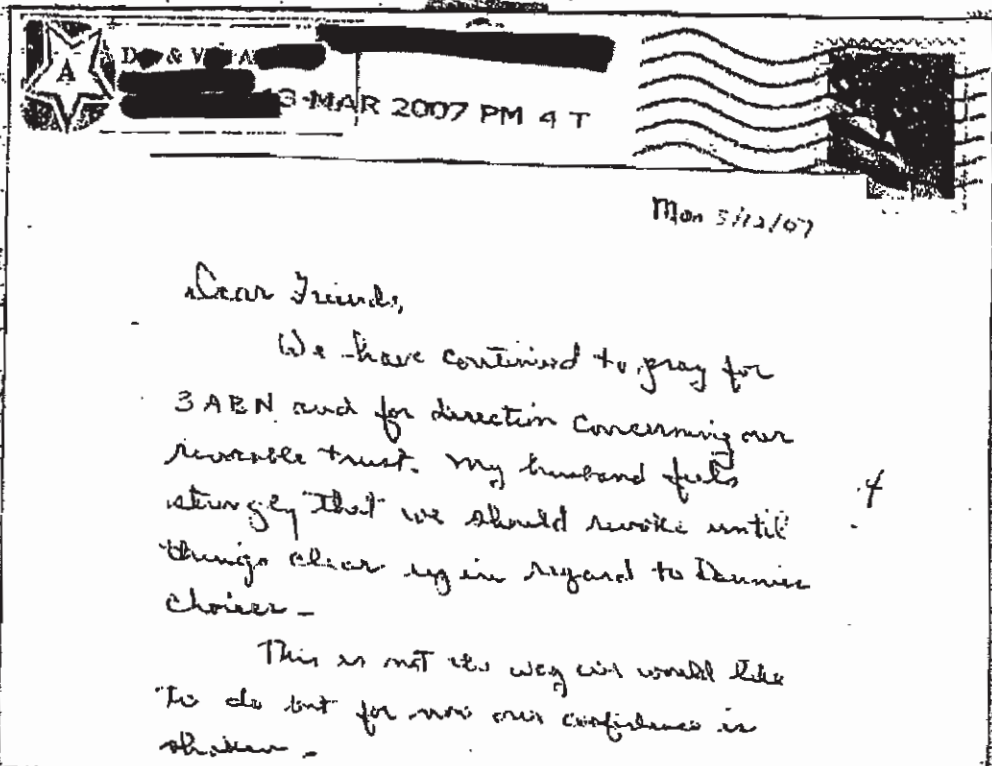 A
D & V A
3 MAR 2007 PM 4 T
Mon 3/12/07
Dear Friends,
We have continued to pray for
3ABN and for direction concerning our
revocable trust. My husband feels
strongly "that" we should revoke until
things clear up in regard to Dannies
choices -
4
This is not the way we would like
to do but for now our confidence is
shaken -